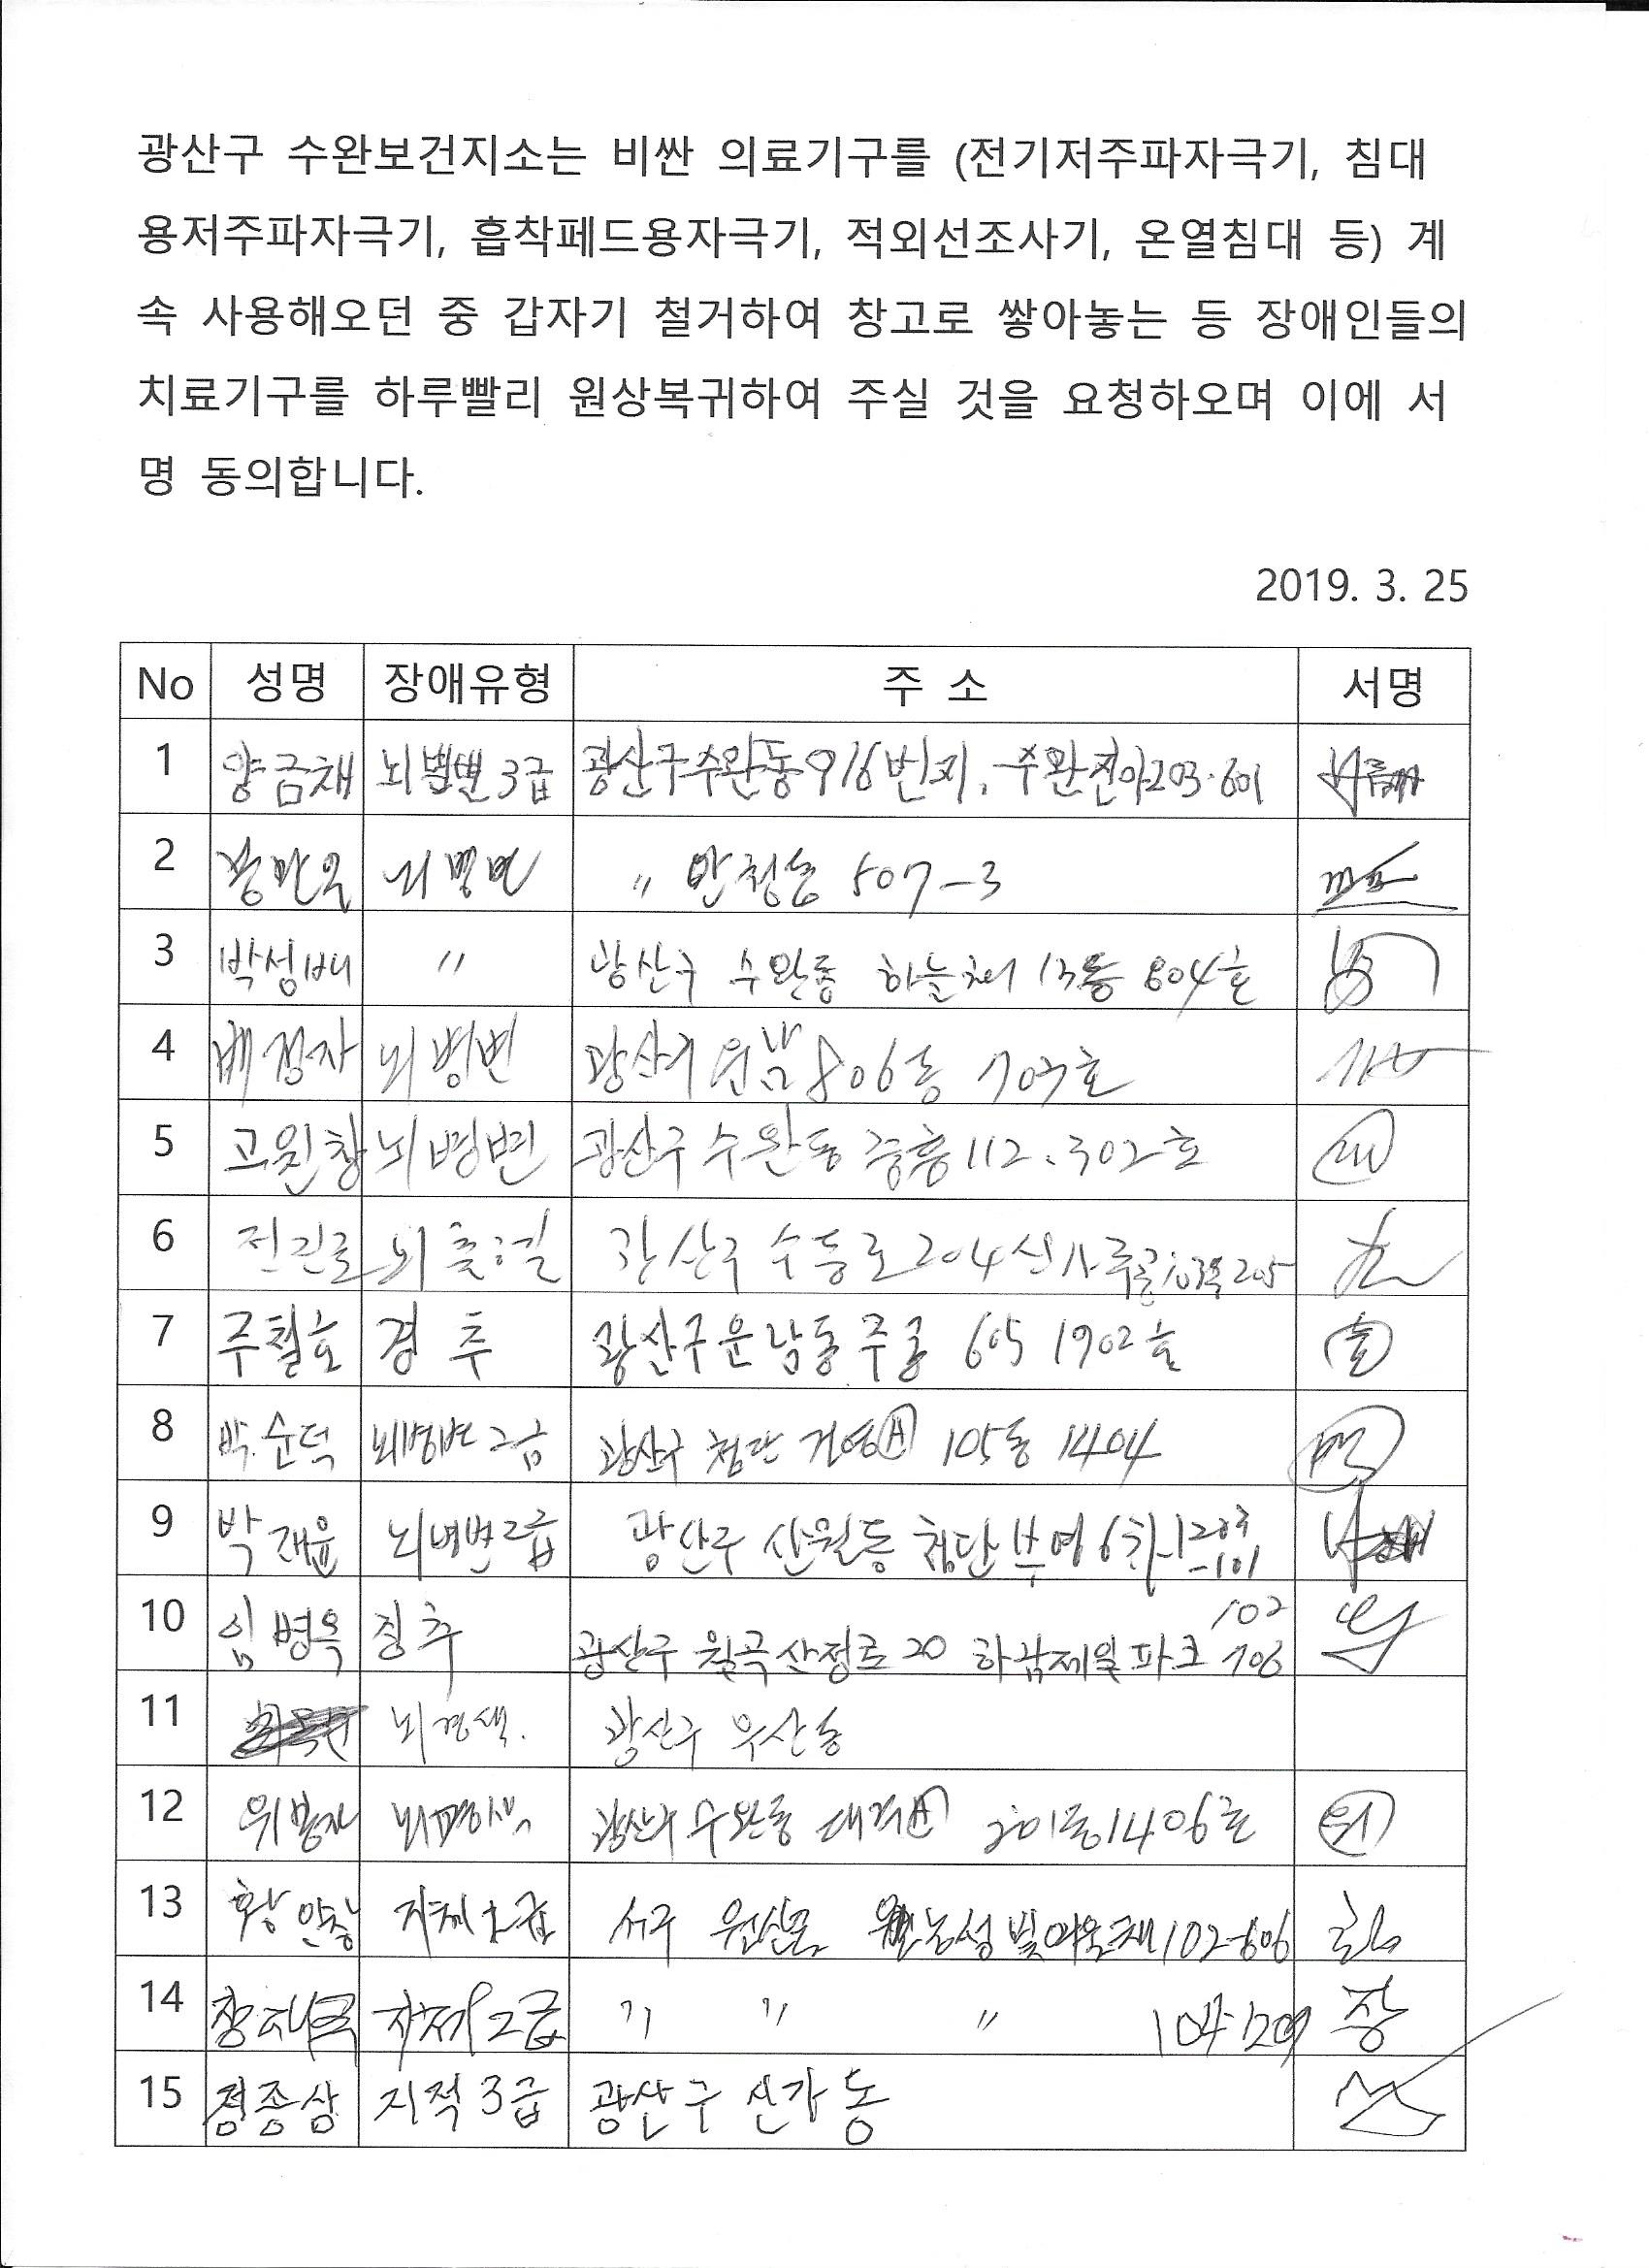 광산구 수완보건지소는 비싼 의료기구를 (전기저주파자극기, 침대
용저주파자극기, 흡착페드용자극기, 적외선조사기, 온열침대 등) 계
속 사용해오던 중 갑자기 철거하여 창고로 쌓아놓는 등 장애인들의
치료기구를 하루빨리 원상복귀하여 주실 것을 요청하오며 이에 서
명 동의합니다.
2019. 3. 25
No 성명 장애유형 주 소 서명
1 양금채 3급 광산구 수완동 916번지. 203.601
2 뇌병변 〃 안청동 507-3
3 박성배 〃 광산구 수완동 하늘채 804호
4 배정자 뇌병변 광산구 806동 703호
5 고원창 뇌병변 광산구 수완동 중흥 112.302호
6 뇌출혈 수등로 204
7 주철호 경추 광산구 운남동 주공 605 1902호
8 박순덕 뇌병변 2급 광산구 첨단 105동 1404
9 박재윤 뇌병변 2급 광산구 산월동 첨단 부영 6차 1203-101
10 임병옥 광산구 월곡산정로 20 파크 102 706
11 뇌경색. 광산구 우산동
12 위봉자 광산구 수완동 201동 1406호 위
13 황 서구 102-606
14 2급 〃 〃 〃 장
15 정종상 지적 3급 광산구 신가동